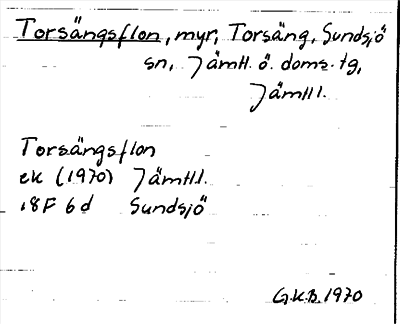 Torsängsflon, myr, Torsäng, Sundsjö
sn, Jämtl. ö. doms. tg,
Jämtl l.
Torsängsflon
ek (1970) Jämtl.l.
18F 6d Sundsjö
G.K.B. 1970